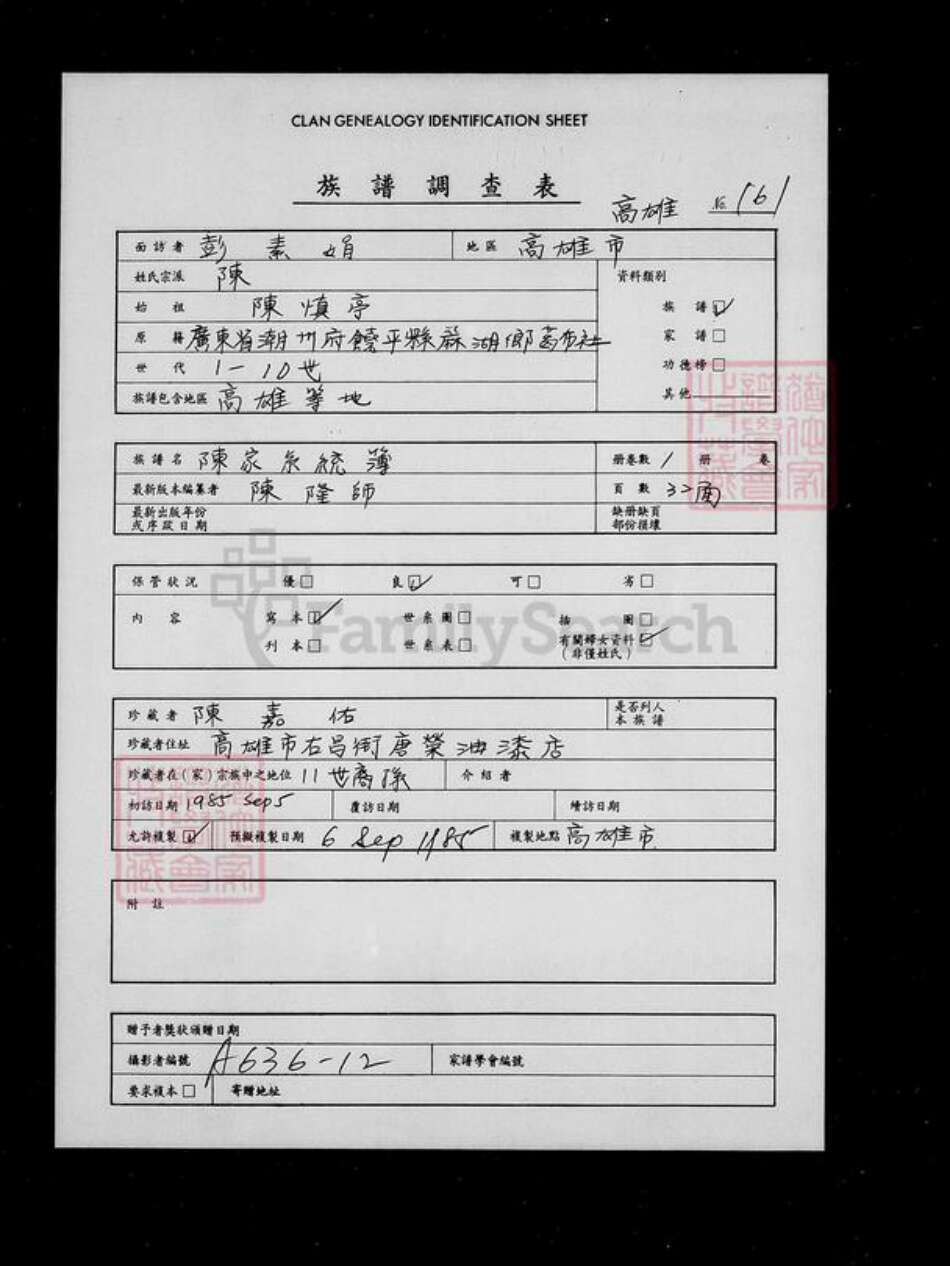 CLAN GENEALOGY IDENTIFICATION SHEET
族譜調查表
高雄 No. 161
面訪者 彭素娟 地區 高雄市
姓氏宗派 陳 資料類別
始祖 陳慎亭 族譜☑
原籍 廣東省潮州府饒平縣 湖鄉 社 家譜□
世代 1-10世 功德榜□
族譜包含地區 高雄等地 其他
族譜名 陳家系統簿 册卷數 1 册 卷
最新版本編纂者 陳隆師 頁數 32面
最新出版年份 缺册缺頁
或序跋日期 部份損壞
保管狀況 優□ 良☑ 可□ 劣□
內容 寫本☑ 世系圖□ 插圖□
刊本□ 世系表□ 有關婦女資料☑
(非僅姓氏)
珍藏者 陳嘉佑 是否列人
本族譜
珍藏者住址 高雄市右昌街唐榮油漆店
珍藏者在(家)宗族中之地位 11世裔孫 介紹者
初訪日期 1985 Sep 5 覆訪日期 續訪日期
允許複製☑ 預擬複製日期 6 Sep 1985 複製地點 高雄市
附註
贈予者獎狀頒贈日期
攝影者編號 A636-12 家譜學會編號
要求複本□ 寄贈地址
FamilySearch